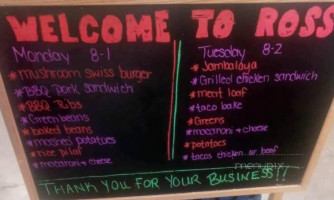 WELCOME TO ROSS
Monday 8-1
*mushroom swiss burger
*BBQ Pork sandwich
*BBQ Ribs
*Green beans
*baked beans
*mashed potatoes
*rice pilaf
*macaroni + cheese
Tuesday 8-2
*Jambalaya
*Grilled chicken sandwich
*meat loaf
*taco bake
*Greens
*macaroni + cheese
*potatoes
*tacos chicken or beef
menupix
THANK YOU FOR YOUR BUSINESS!!